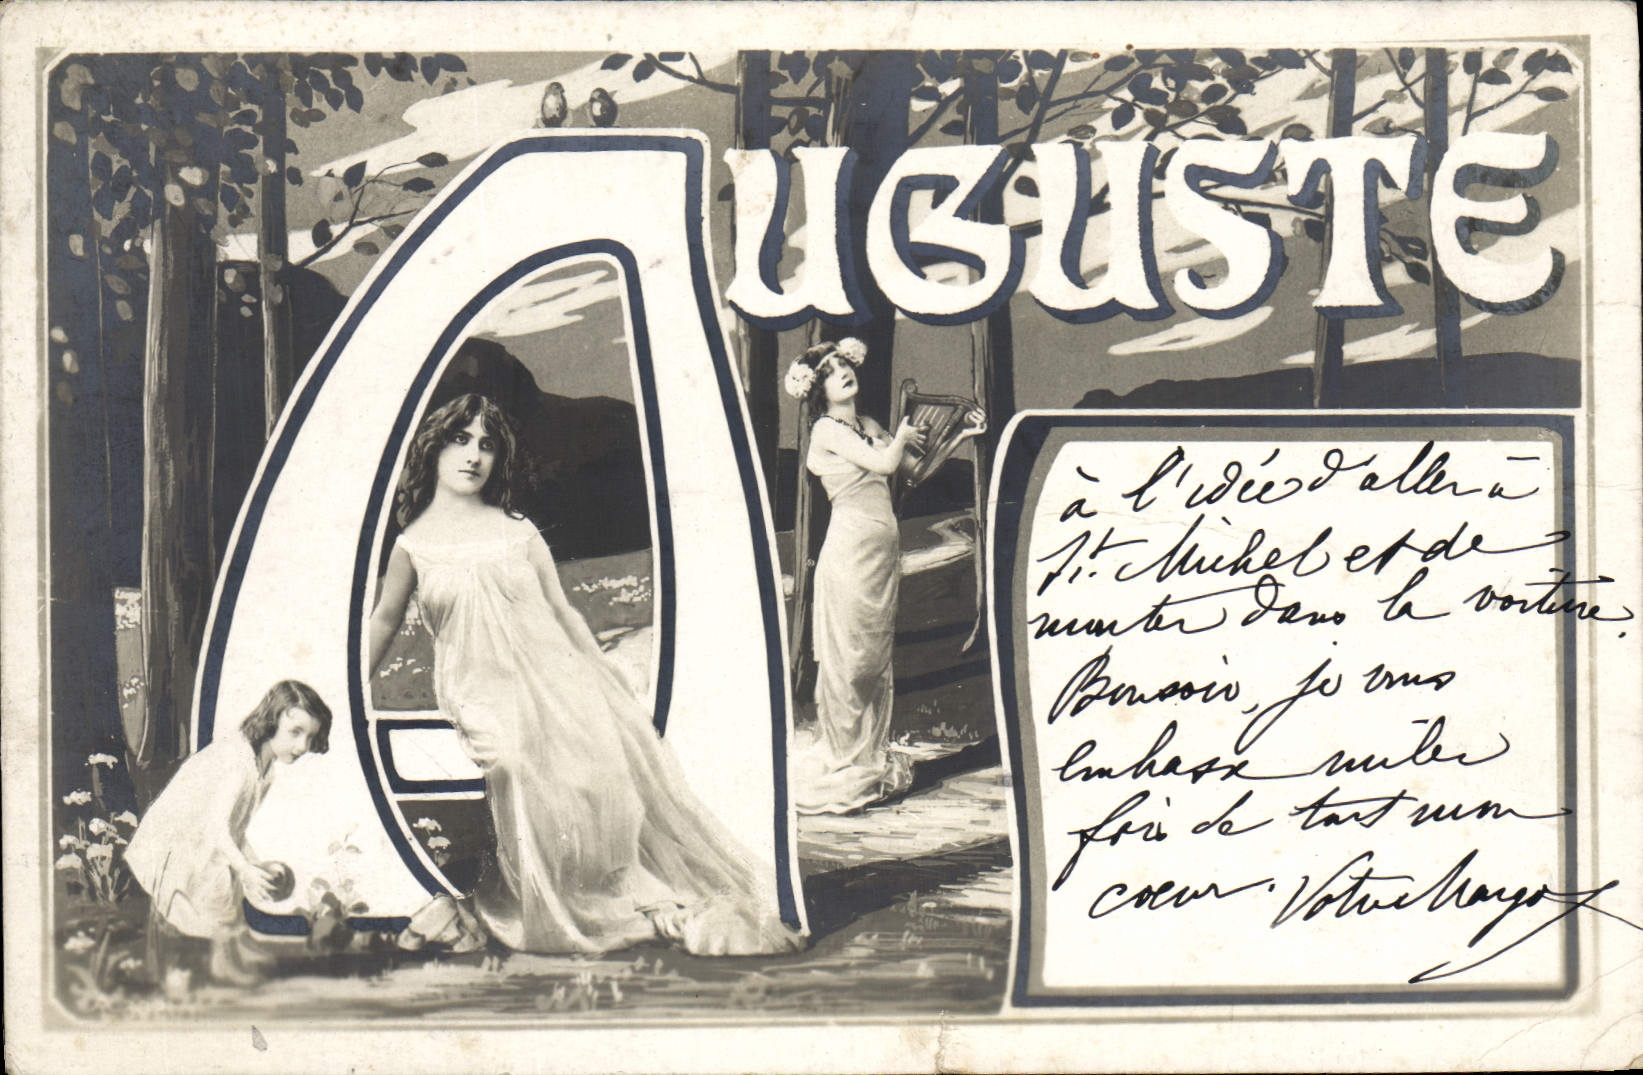 AUGUSTE
à l'idée d'aller à
St. Michel et de
monter dans la voiture.
Bonsoir, je vous
embrasse mille
fois de tout mon
coeur. Votre Margot